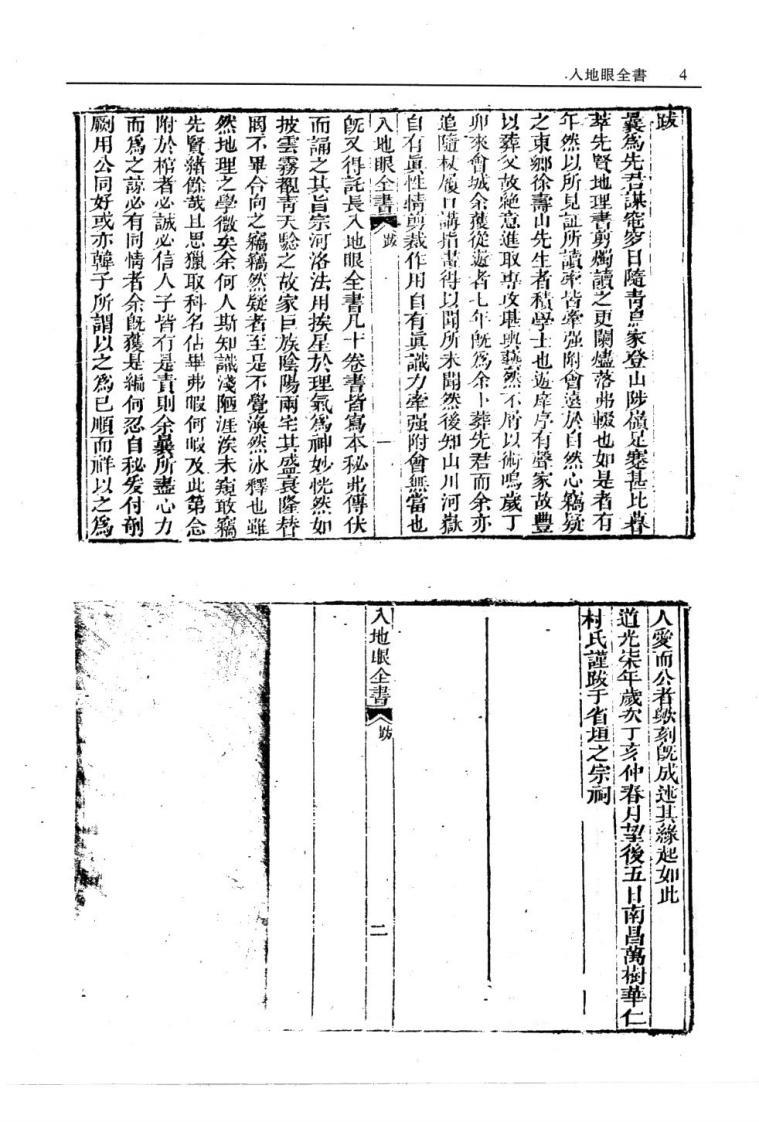 入地眼全書 4
跋
曩爲先君謀窀穸日隨青烏家登山陟嶺足蹇甚比暮
萃先賢地理書剪燭讀之更闌燼落弗輟也如是者有
年然以所見証所讀率皆牽强附會遠於自然心竊疑
之東鄉徐壽山先生者積學士也遊庠序有聲家故豐
以葬父故絶意進取専攻堪輿藝然不屑以術鳴歲丁
卯來會城余獲從遊者七年旣爲余卜葬先君而余亦
追隨杖履口講指畫得以聞所未聞然後知山川河嶽
自有眞性情剪裁作用自有眞識力牽强附會無當也
入地眼全書 跋 一
旣又得託長入地眼全書凡十卷書皆寫本秘弗傳伏
而誦之其旨宗河洛法用挨星於理氣爲神妙恍然如
披雲霧覩青天驗之故家巨族陰陽兩宅其盛衰隆替
罔不畢合向之竊竊然疑者至是不覺渙然冰釋也雖
然地理之學微矣余何人斯知識淺陋涯涘未窺敢竊
先賢緒餘哉且思獵取科名佔畢弗暇何暇及此第念
附於棺者必誠必信人子皆有是責則余曩所盡心力
而爲之諒必有同情者余旣獲是編何忍自秘爰付剞
劂用公同好或亦韓子所謂以之爲已順而祥以之爲
人愛而公者歟刻旣成述其緣起如此
道光柒年歲次丁亥仲春月望後五日南昌萬樹華仁
村氏謹跋于省垣之宗祠
入地眼全書 跋 二